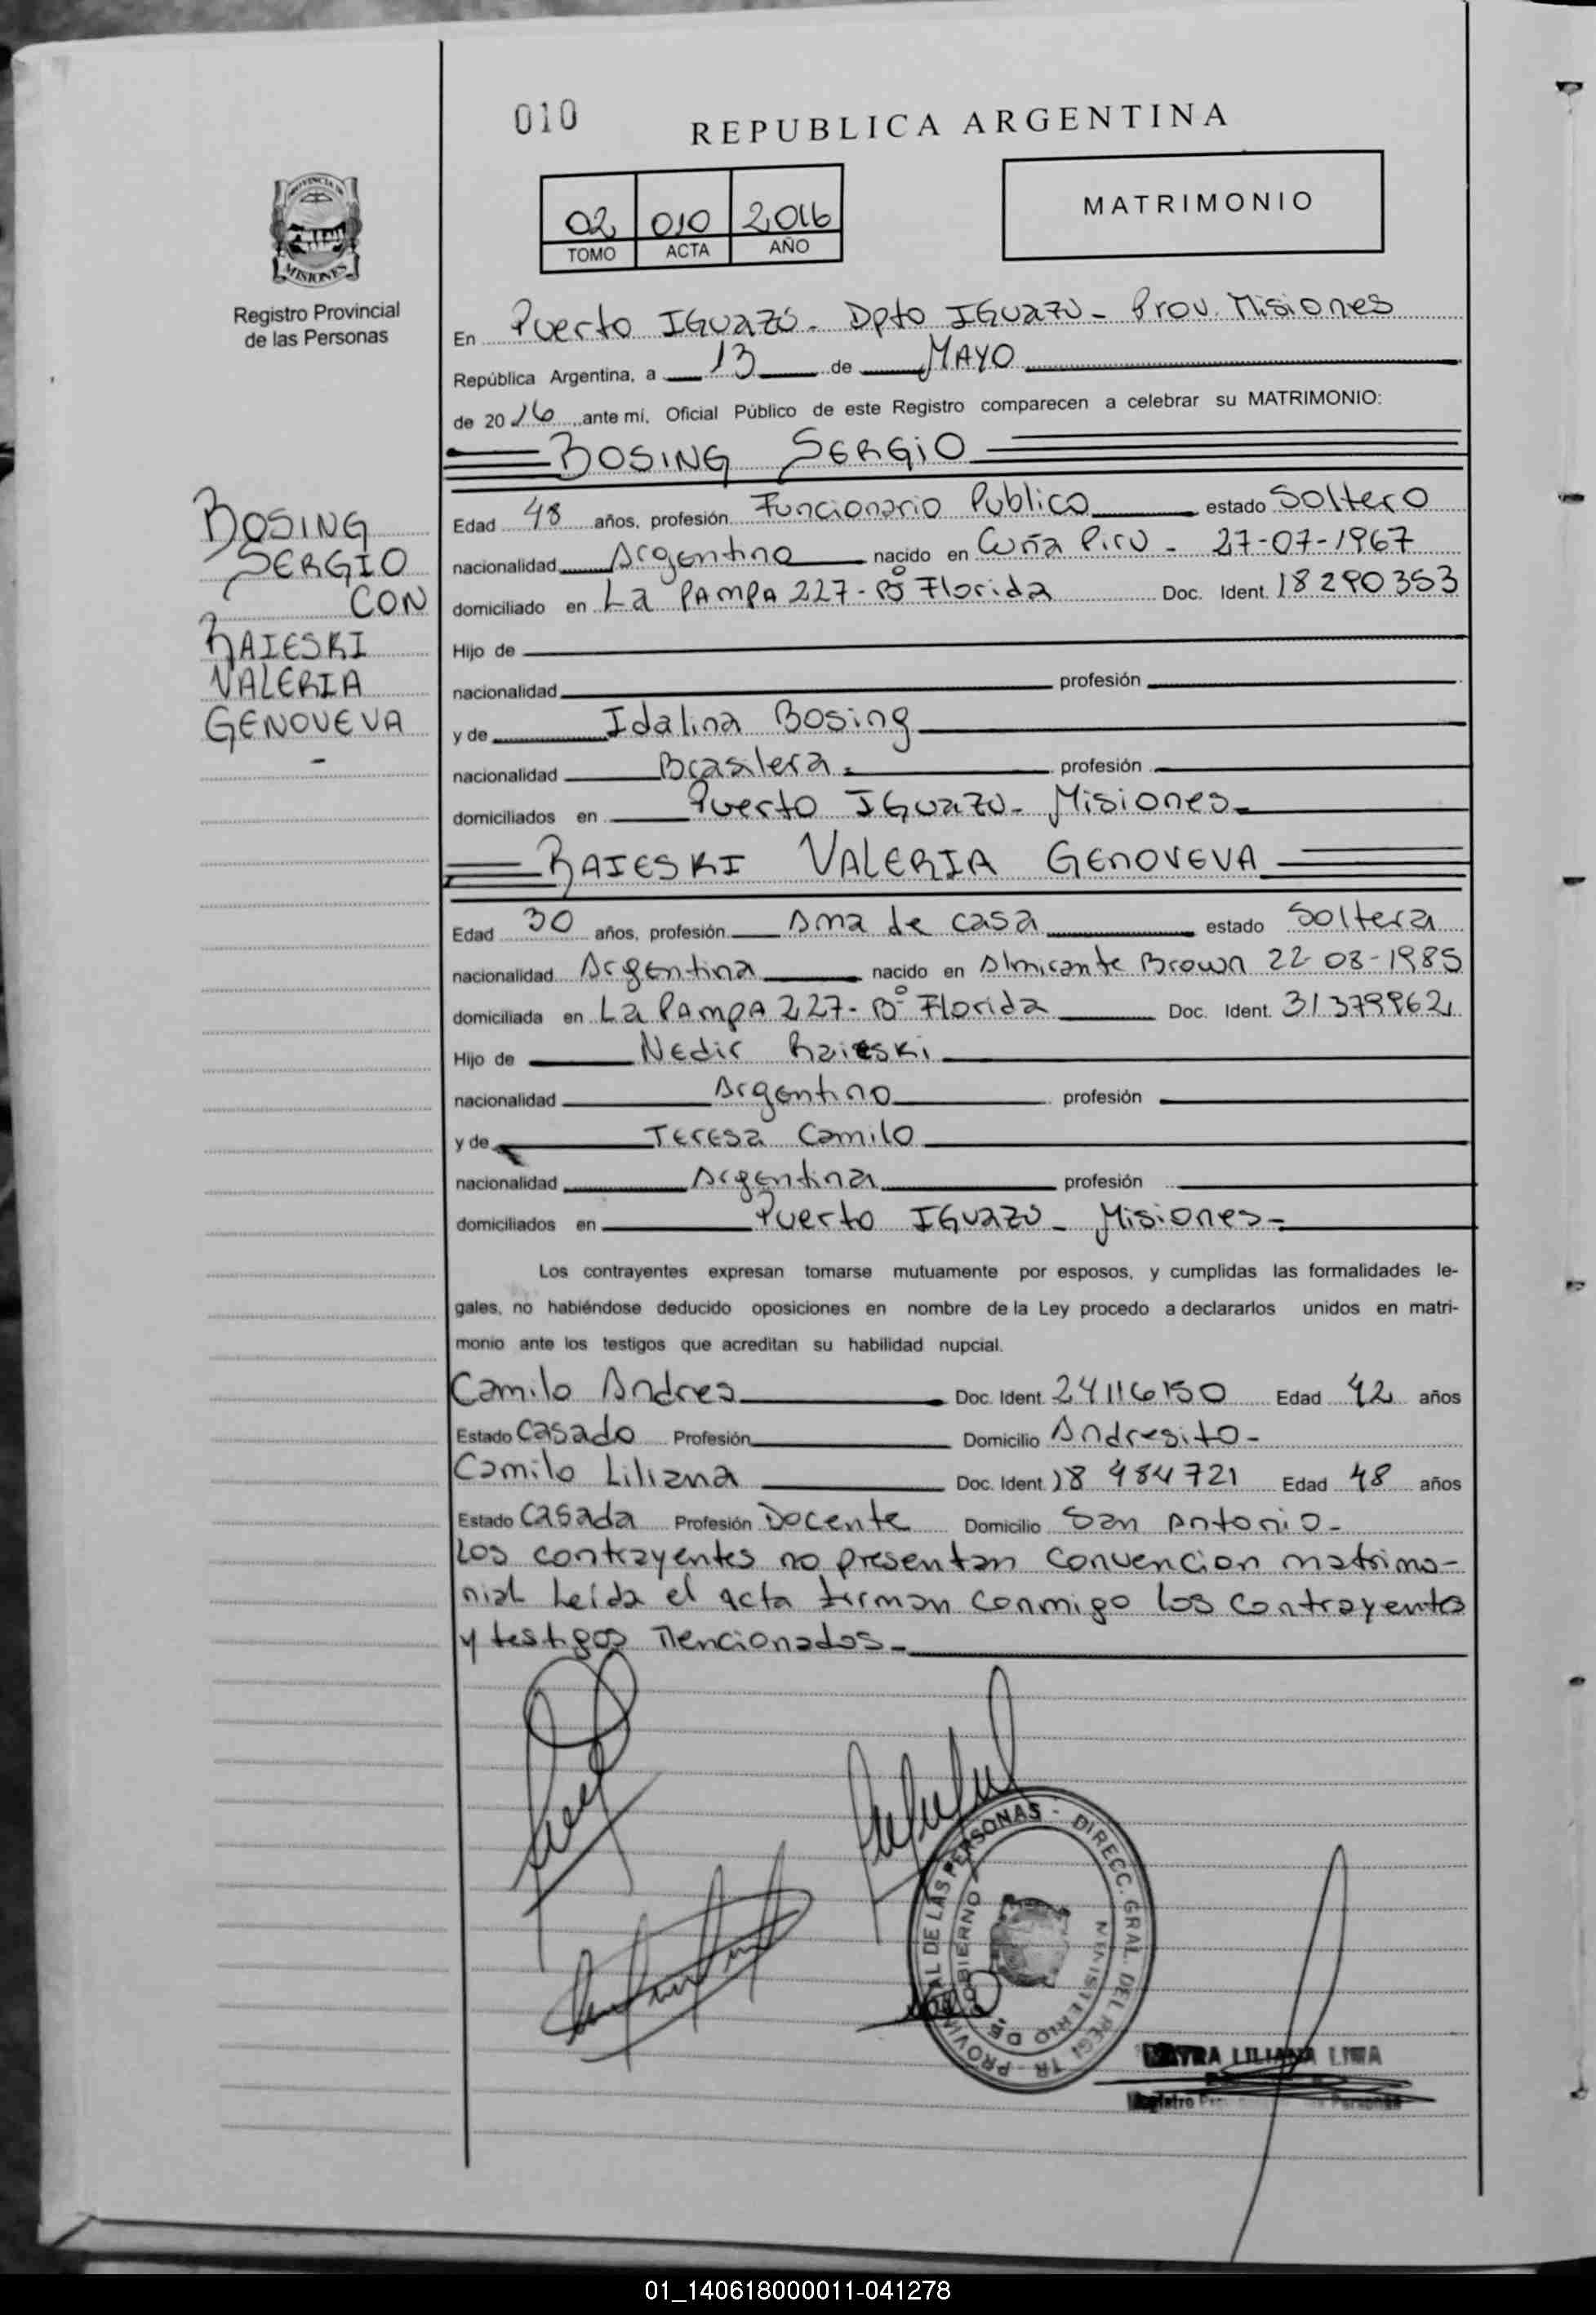 010
REPUBLICA ARGENTINA
02 010 2016
TOMO ACTA AÑO
MATRIMONIO
PROVINCIA DE
MISIONES
Registro Provincial
de las Personas
En Puerto IGuazú - Dpto IGuazu - Prov. Misiones
República Argentina, a 13 de MAYO
de 2016 ante mí, Oficial Público de este Registro comparecen a celebrar su MATRIMONIO:
BOSING SERGIO
BOSING
SERGIO
CON
RAIESKI
VALERIA
GENOVEVA
-
Edad 48 años, profesión Funcionario Publico estado Soltero
nacionalidad Argentino nacido en Cuña Piru - 27-07-1967
domiciliado en La PAMPA 227 - Bº Florida Doc. Ident. 18290353
Hijo de
nacionalidad profesión
y de Idalina Bosing
nacionalidad Brasilera. profesión
domiciliados en Puerto IGuazu - Misiones -
RAIESKI VALERIA GENOVEVA
Edad 30 años, profesión Ama de casa estado Soltera
nacionalidad Argentina nacido en Almirante Brown 22-08-1985
domiciliada en La PAMPA 227 - Bº Florida Doc. Ident.
Hijo de Nedir Raieski
nacionalidad Argentino profesión
y de Teresa Camilo
nacionalidad Argentina profesión
domiciliados en Puerto IGuazu - Misiones -
Los contrayentes expresan tomarse mutuamente por esposos, y cumplidas las formalidades le-
gales, no habiéndose deducido oposiciones en nombre de la Ley procedo a declararlos unidos en matri-
monio ante los testigos que acreditan su habilidad nupcial.
Camilo Andres Doc. Ident. 24116150 Edad 42 años
Estado Casado Profesión Domicilio Andresito -
Camilo Liliana Doc. Ident. 18 484721 Edad 48 años
Estado Casada Profesión Docente Domicilio San Antonio -
Los contrayentes no presentan convencion matrimo-
nial Leída el acta firman conmigo los contrayentes
y testigos mencionados -
DIRECC. GRAL. DEL REGISTR - PROVINCIAL DE LAS PERSONAS -
MINISTERIO DE GOBIERNO
LILIANA
01_140618000011-041278